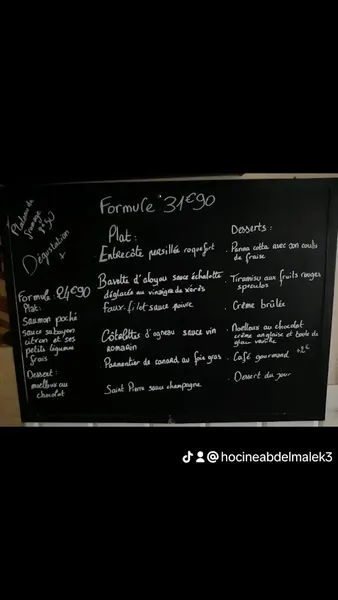 Plateau de
fromage
8€50
Dégustation
Formule 24€90
Plat:
Saumon poché
sauce sabayon
citron et ses
petits légumes
frais
Dessert:
moelleux au
chocolat
Formule 31€90
Plat:
Entrecôte persillée roquefort
Bavette d'aloyau sauce échalotte
déglacés au vinaigre de xérès
faux-filet sauce poivre
Côtelettes d'agneau sauce vin
romarin
Parmentier de canard au foie gras
Saint Pierre sauce champagne
Desserts:
Panna cotta avec son coulis
de fraise
Tiramisu aux fruits rouges
spéculos
Crème brûlée
Moelleux au chocolat
crème anglaise et boule de
glace vanille
Café gourmand +2€
Dessert du jour
@hocineabdelmalek3